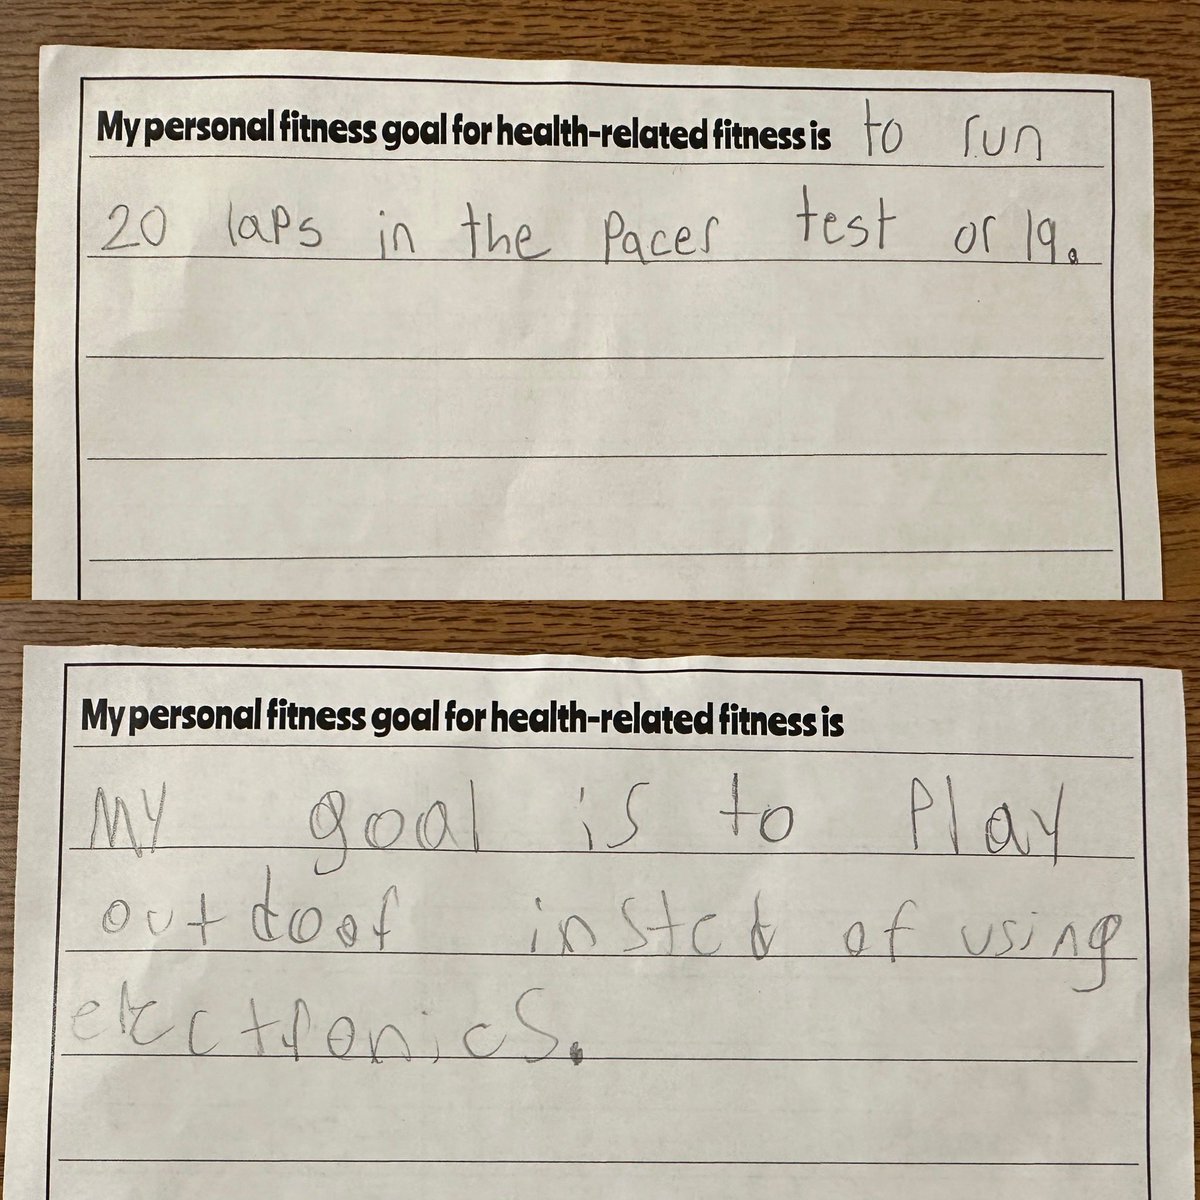 My personal fitness goal for health-related fitness is to run
20 laps in the Pacer test or 19.
My personal fitness goal for health-related fitness is
My goal is to Play
outdoor insted of using
electronics.